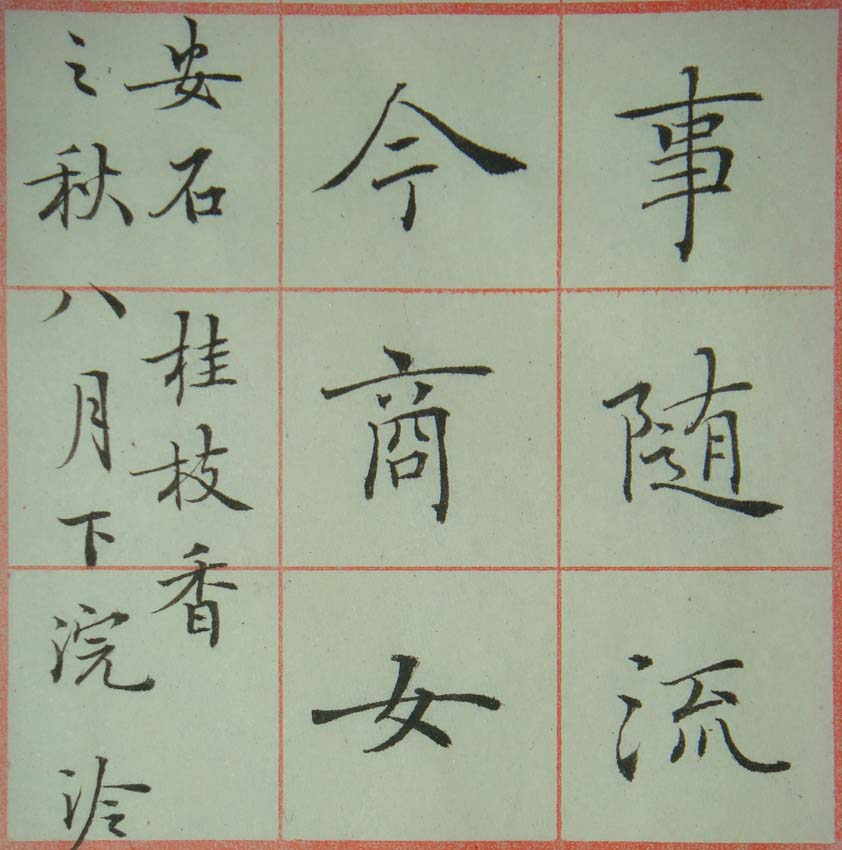 事随流
今商女
安石桂枝香
之秋八月下浣泠